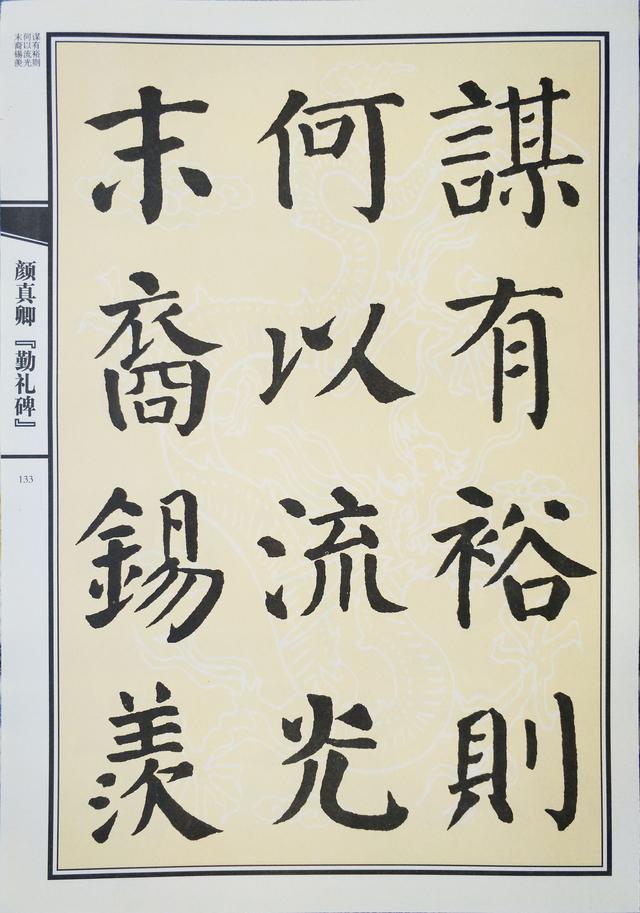 謀有裕則
何以流光
末裔錫羨
谋有裕则
何以流光
末裔锡羨
颜真卿『勤礼碑』
133